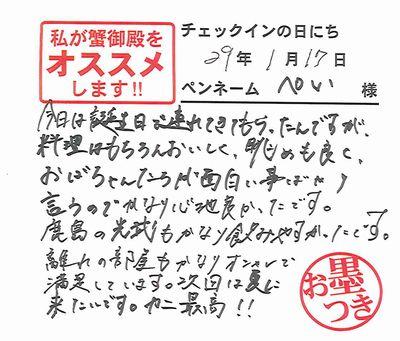 私が蟹御殿を
オススメ
します!!
チェックインの日にち
29年 1月17日
ペンネーム ぺい 様
今日は誕生日で連れてきてもらったんですが、
料理はもちろんおいしく、眺めも良く、
おばちゃんたちが面白い事ばかり
言うのでかなり心地良かったです。
鹿島の光武もかなり飲みやすかったです。
離れの部屋もかなりオシャレで
満足しています。次回は夏に
来たいです。カニ最高!!
お墨つき